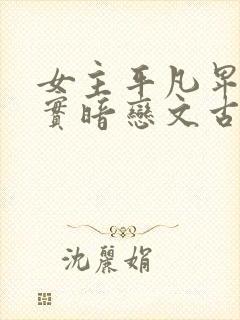 女主平凡卑
實暗戀文古
沈麗娟